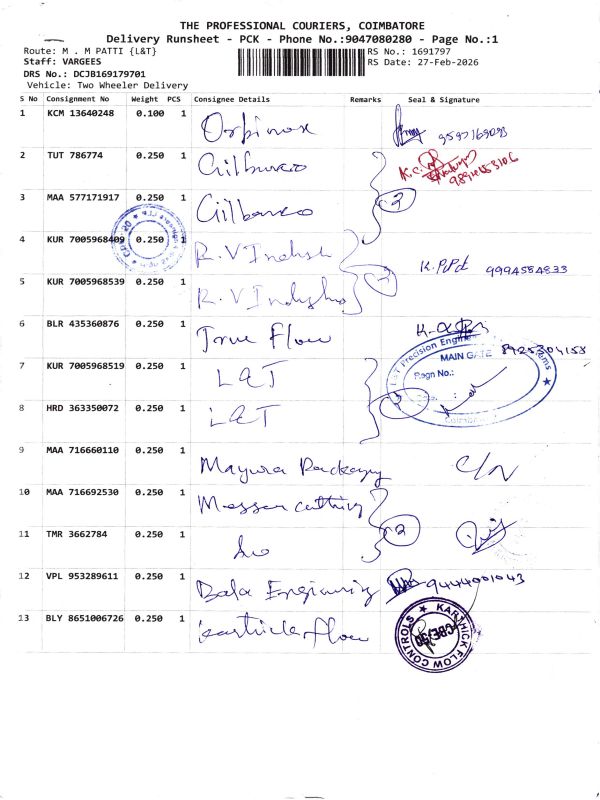 THE PROFESSIONAL COURIERS, COIMBATORE
Delivery Runsheet - PCK - Phone No.:9047080280 - Page No.:1
Route: M . M PATTI {L&T}
RS No.: 1691797
Staff: VARGEES
RS Date: 27-Feb-2026
DRS No.: DCJB169179701
Vehicle: Two Wheeler Delivery
S No Consignment No Weight PCS Consignee Details Remarks Seal & Signature
1 KCM 13640248 0.100 1 9597169093
2 TUT 786774 0.250 1 Gilbarco K.C.
3 MAA 577171917 0.250 1 Gilbarco 2
4 KUR 7005968409 0.250 1 R.V Indush
5 KUR 7005968539 0.250 1 R.V Indushio 2 9994584833
6 BLR 435360876 0.250 1 True Flow
7 KUR 7005968519 0.250 1 L&T 8925304158
L&T Precision Engine
MAIN GATE
Regn No.:
8 HRD 363350072 0.250 1 L&T
9 MAA 716660110 0.250 1 Mayura Packagng C/N
10 MAA 716692530 0.250 1 Messer cutting
11 TMR 3662784 0.250 1 do 2
12 VPL 953289611 0.250 1 Bala Enginring 9444001043
13 BLY 8651006726 0.250 1 karthick flow
KARTHICK FLOW CONTROLS
CBE-50